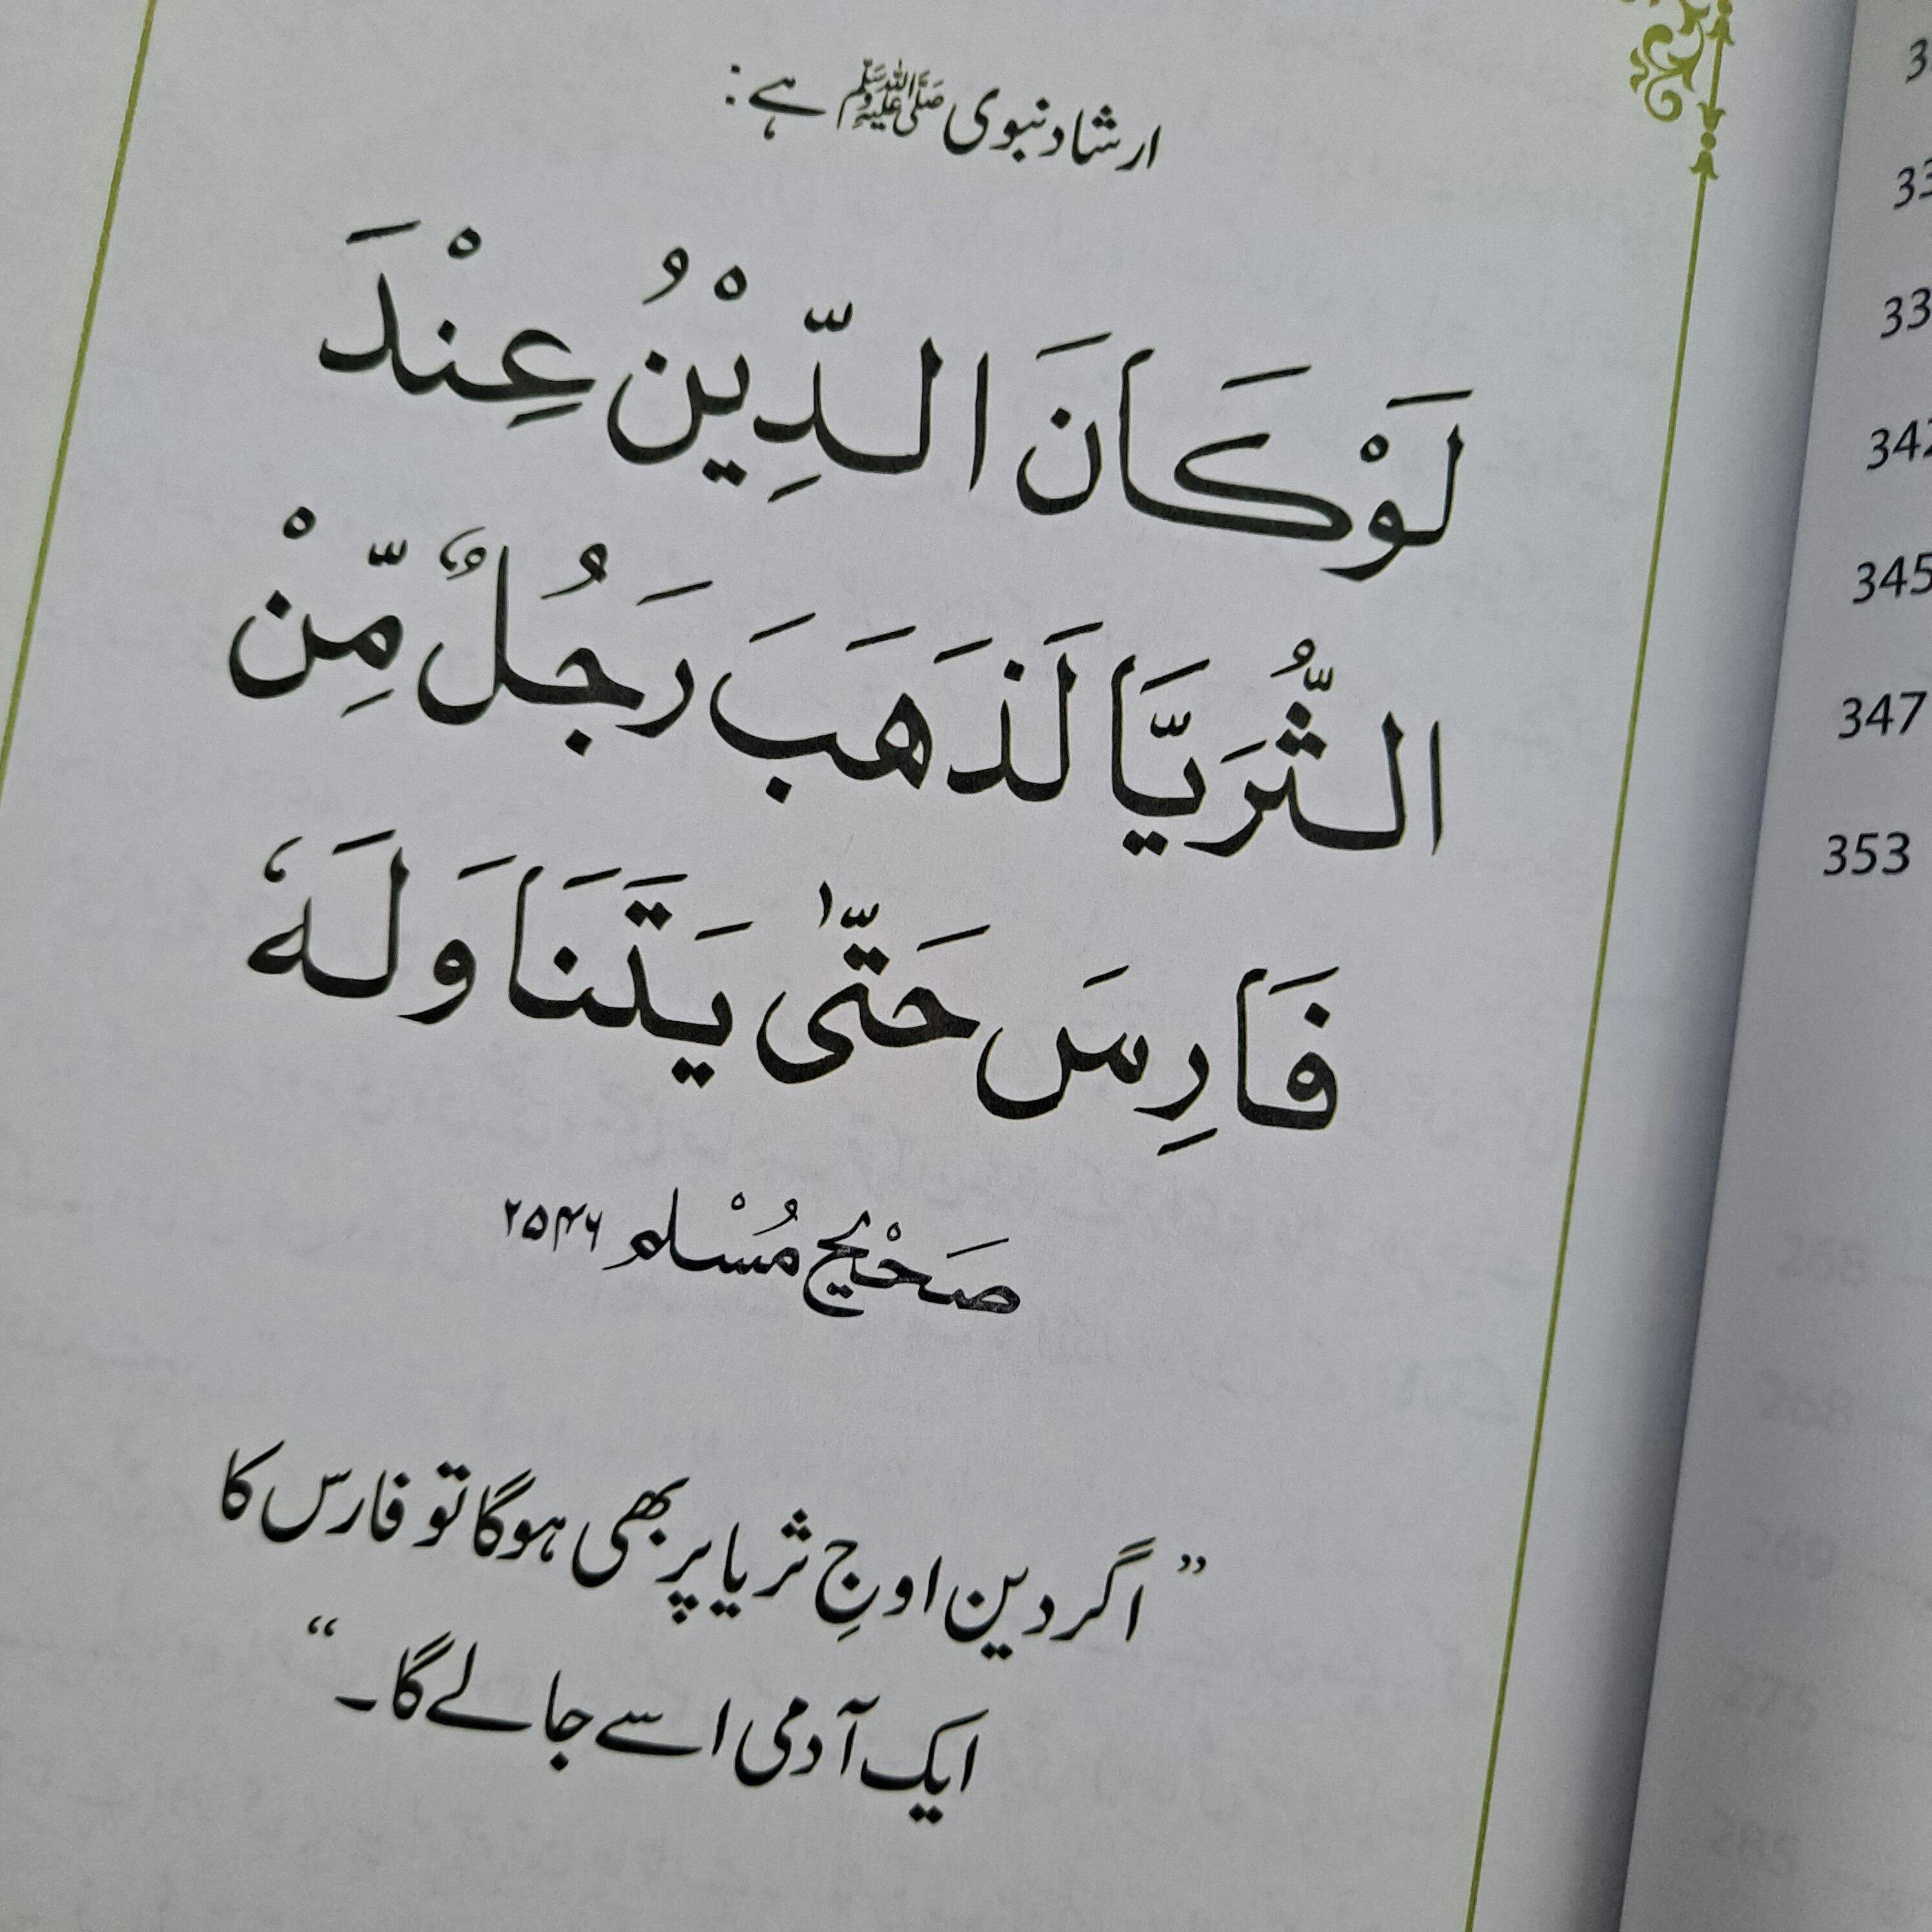 ارشاد نبوی ﷺ ہے:
لَوْ كَانَ الدِّيْنُ عِنْدَ
الثُّرَيَّا لَذَهَبَ رَجُلٌ مِّنْ
فَارِسَ حَتّٰى يَتَنَاوَلَهٗ
صَحْيح مُسْلم ۲۵۴۶
”اگر دین اوجِ ثریا پر بھی ہوگا تو فارس کا
ایک آدمی اسے جا لے گا۔“
342
345
347
353